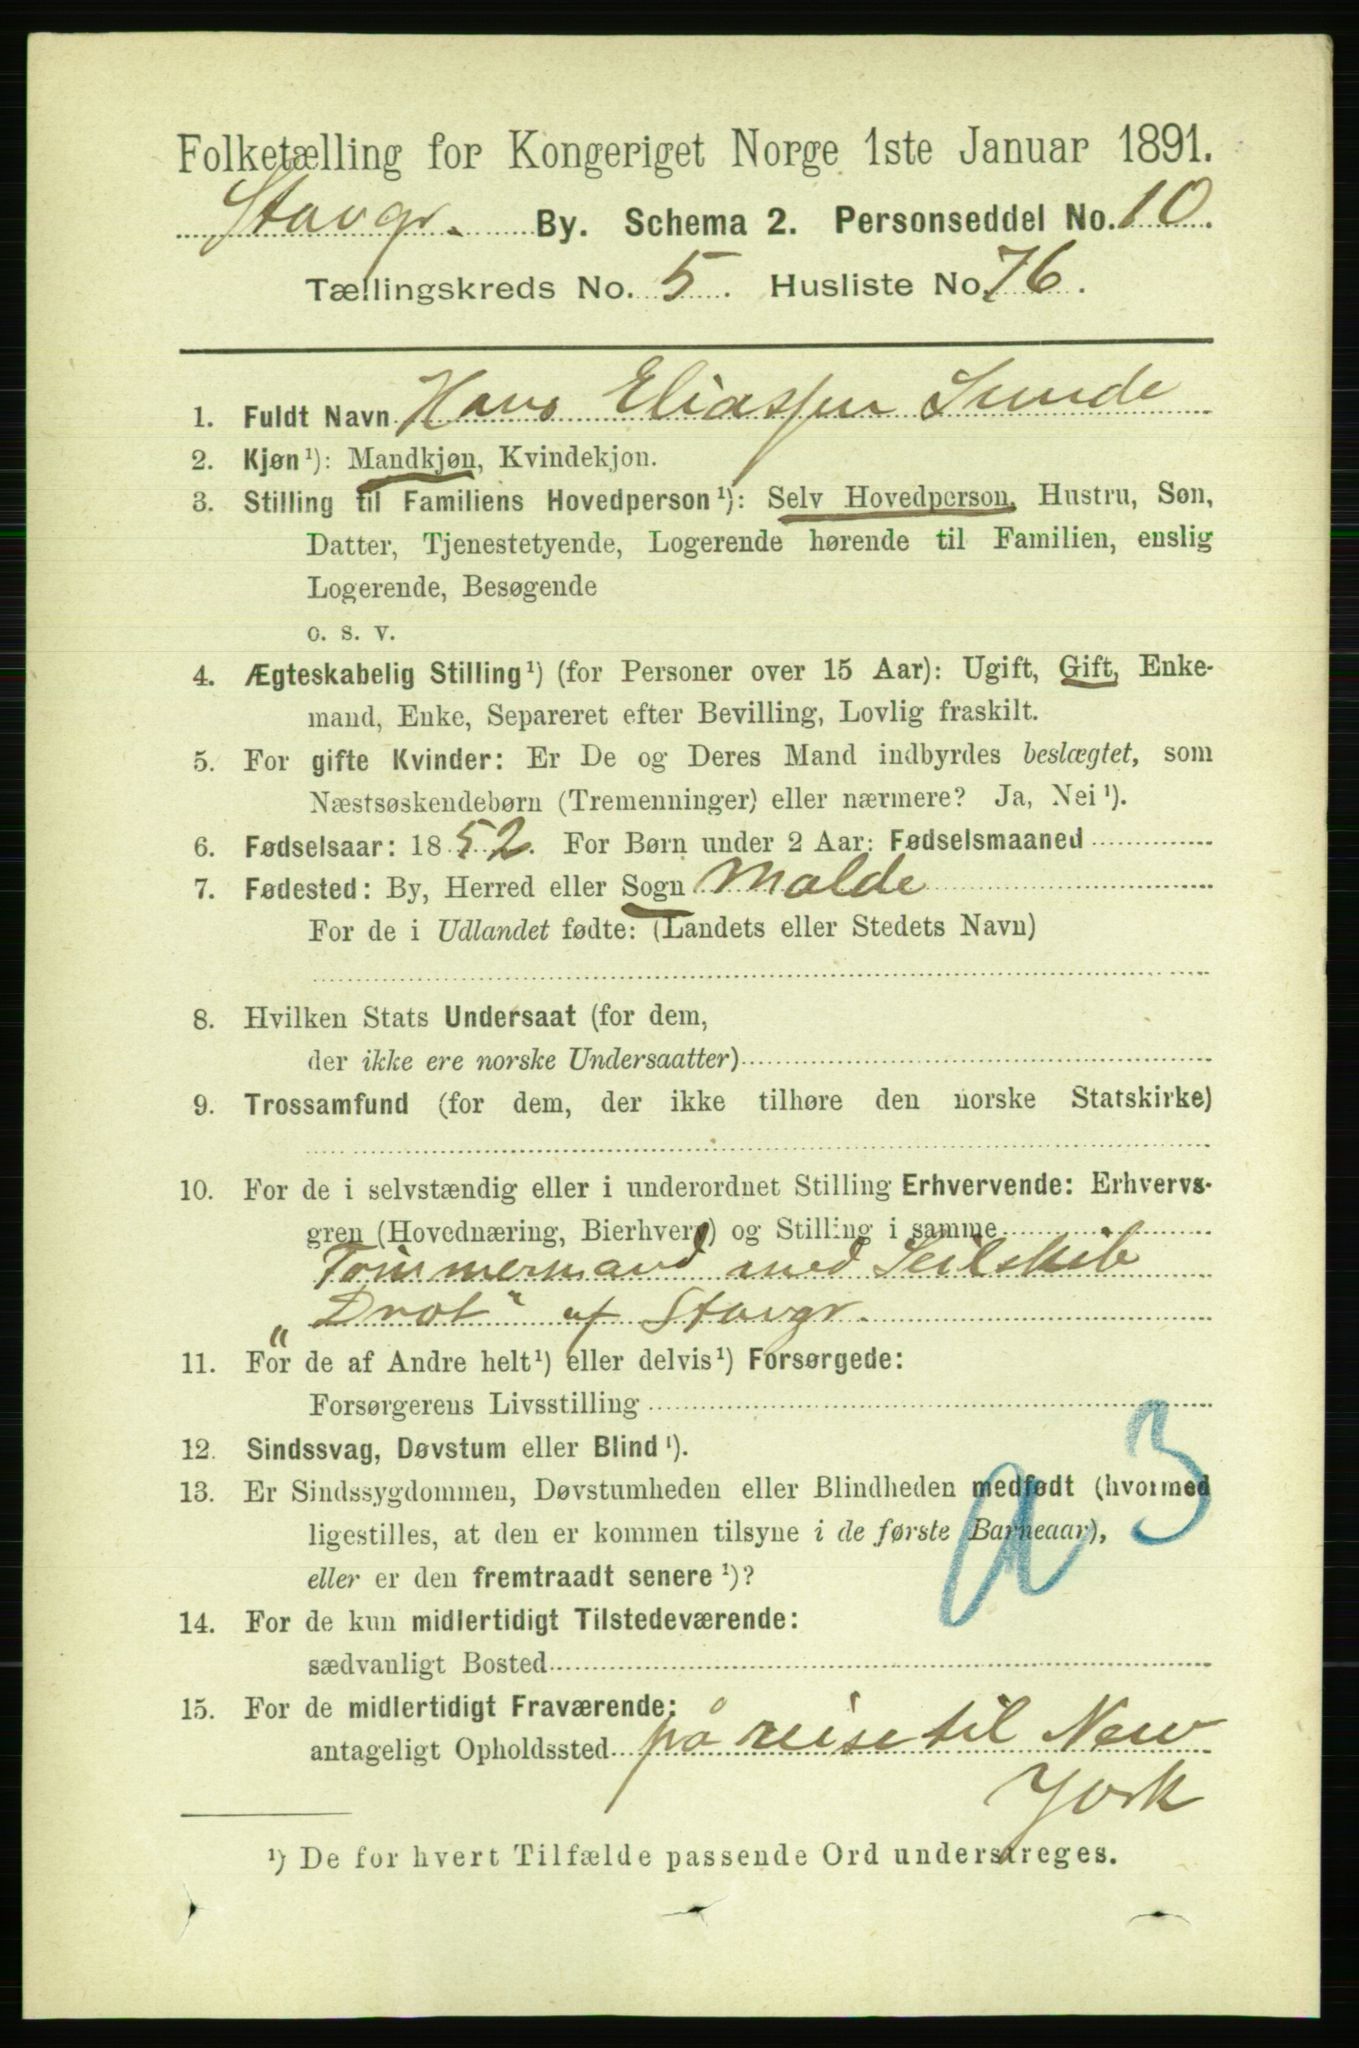 Folketælling for Kongeriget Norge 1ste Januar 1891.
Stavgr. By. Schema 2. Personseddel No. 10.
Tællingskreds No. 5. Husliste No. 76.
1. Fuldt Navn Hans Eliassen Sunde
2. Kjøn¹): Mandkjøn, Kvindekjon.
3. Stilling til Familiens Hovedperson¹): Selv Hovedperson, Hustru, Søn,
Datter, Tjenestetyende, Logerende hørende til Familien, enslig
Logerende, Besøgende
o. s. v.
4. Ægteskabelig Stilling¹) (for Personer over 15 Aar): Ugift, Gift, Enke-
mand, Enke, Separeret efter Bevilling, Lovlig fraskilt.
5. For gifte Kvinder: Er De og Deres Mand indbyrdes beslægtet, som
Næstsøskendebørn (Tremenninger) eller nærmere? Ja, Nei¹).
6. Fødselsaar: 1852. For Børn under 2 Aar: Fødselsmaaned
7. Fødested: By, Herred eller Sogn Malde
For de i Udlandet fødte: (Landets eller Stedets Navn)
8. Hvilken Stats Undersaat (for dem,
der ikke ere norske Undersaatter)
9. Trossamfund (for dem, der ikke tilhøre den norske Statskirke)
10. For de i selvstændig eller i underordnet Stilling Erhvervende: Erhvervs-
gren (Hovednæring, Bierhverv) og Stilling i samme
Tømmermand med Seilskib
„Drot" af Stavgr.
11. For de af Andre helt¹) eller delvis¹) Forsørgede:
Forsørgerens Livsstilling
12. Sindssvag, Døvstum eller Blind¹).
13. Er Sindssygdommen, Døvstumheden eller Blindheden medfødt (hvormed
ligestilles, at den er kommen tilsyne i de første Barneaar),
eller er den fremtraadt senere¹)?
a 3
14. For de kun midlertidigt Tilstedeværende:
sædvanligt Bosted
15. For de midlertidigt Fraværende:
antageligt Opholdssted på reise til New
York
¹) De for hvert Tilfælde passende Ord understreges.